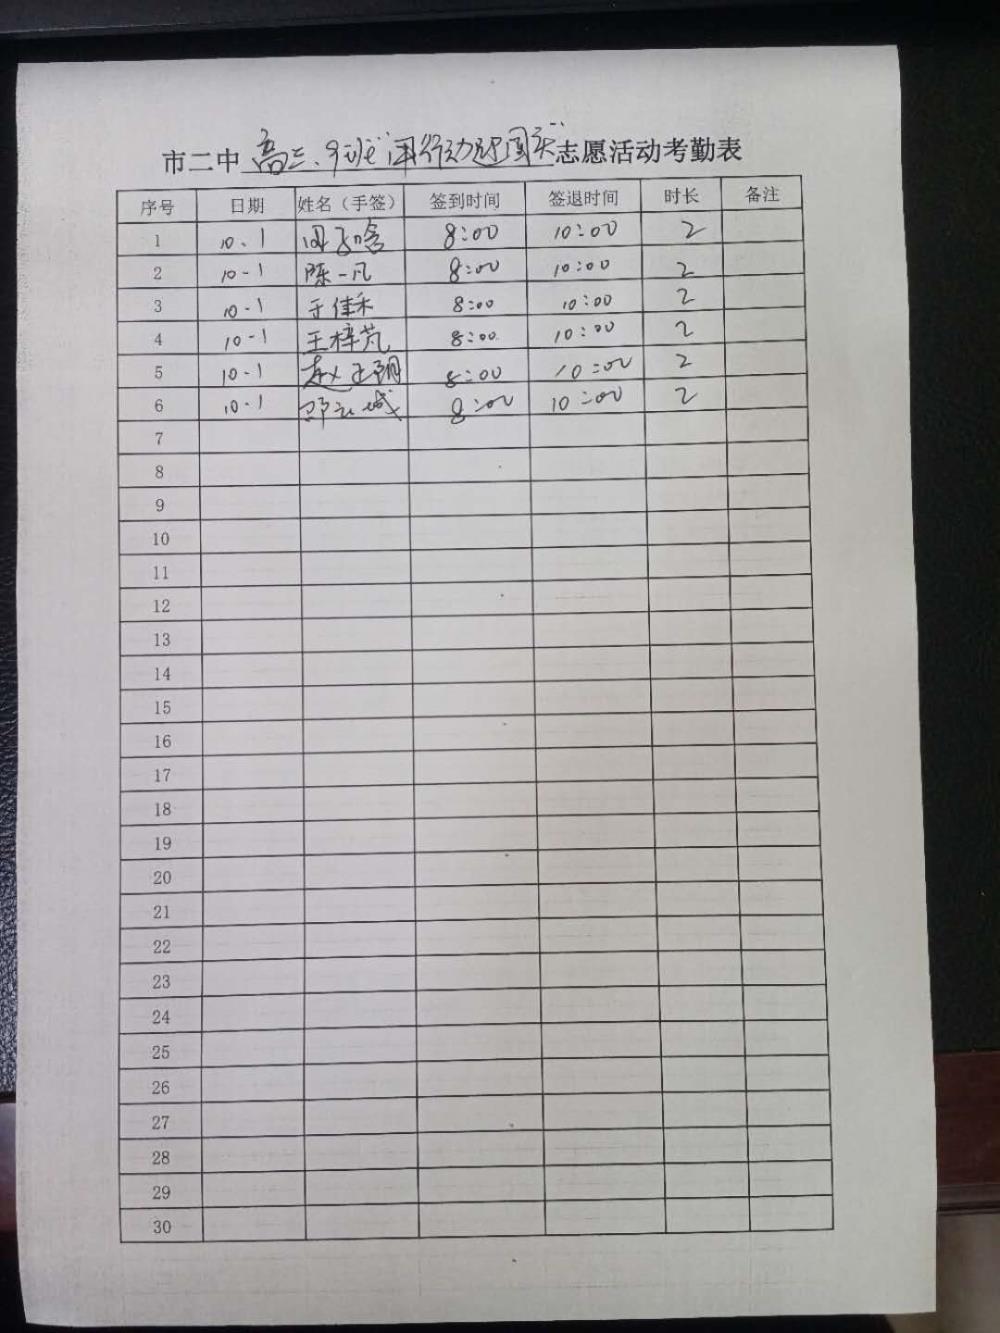 市二中高三.9班"用行动迎国庆"志愿活动考勤表
序号 日期 姓名（手签） 签到时间 签退时间 时长 备注
1 10.1 8:00 10:00 2
2 10-1 陈一凡 8:00 10:00 2
3 10.1 于佳禾 8:00 10:00 2
4 10-1 王梓芃 8:00 10:00 2
5 10-1 赵 8:00 10:00 2
6 10.1 8:00 10:00 2
7
8
9
10
11
12
13
14
15
16
17
18
19
20
21
22
23
24
25
26
27
28
29
30